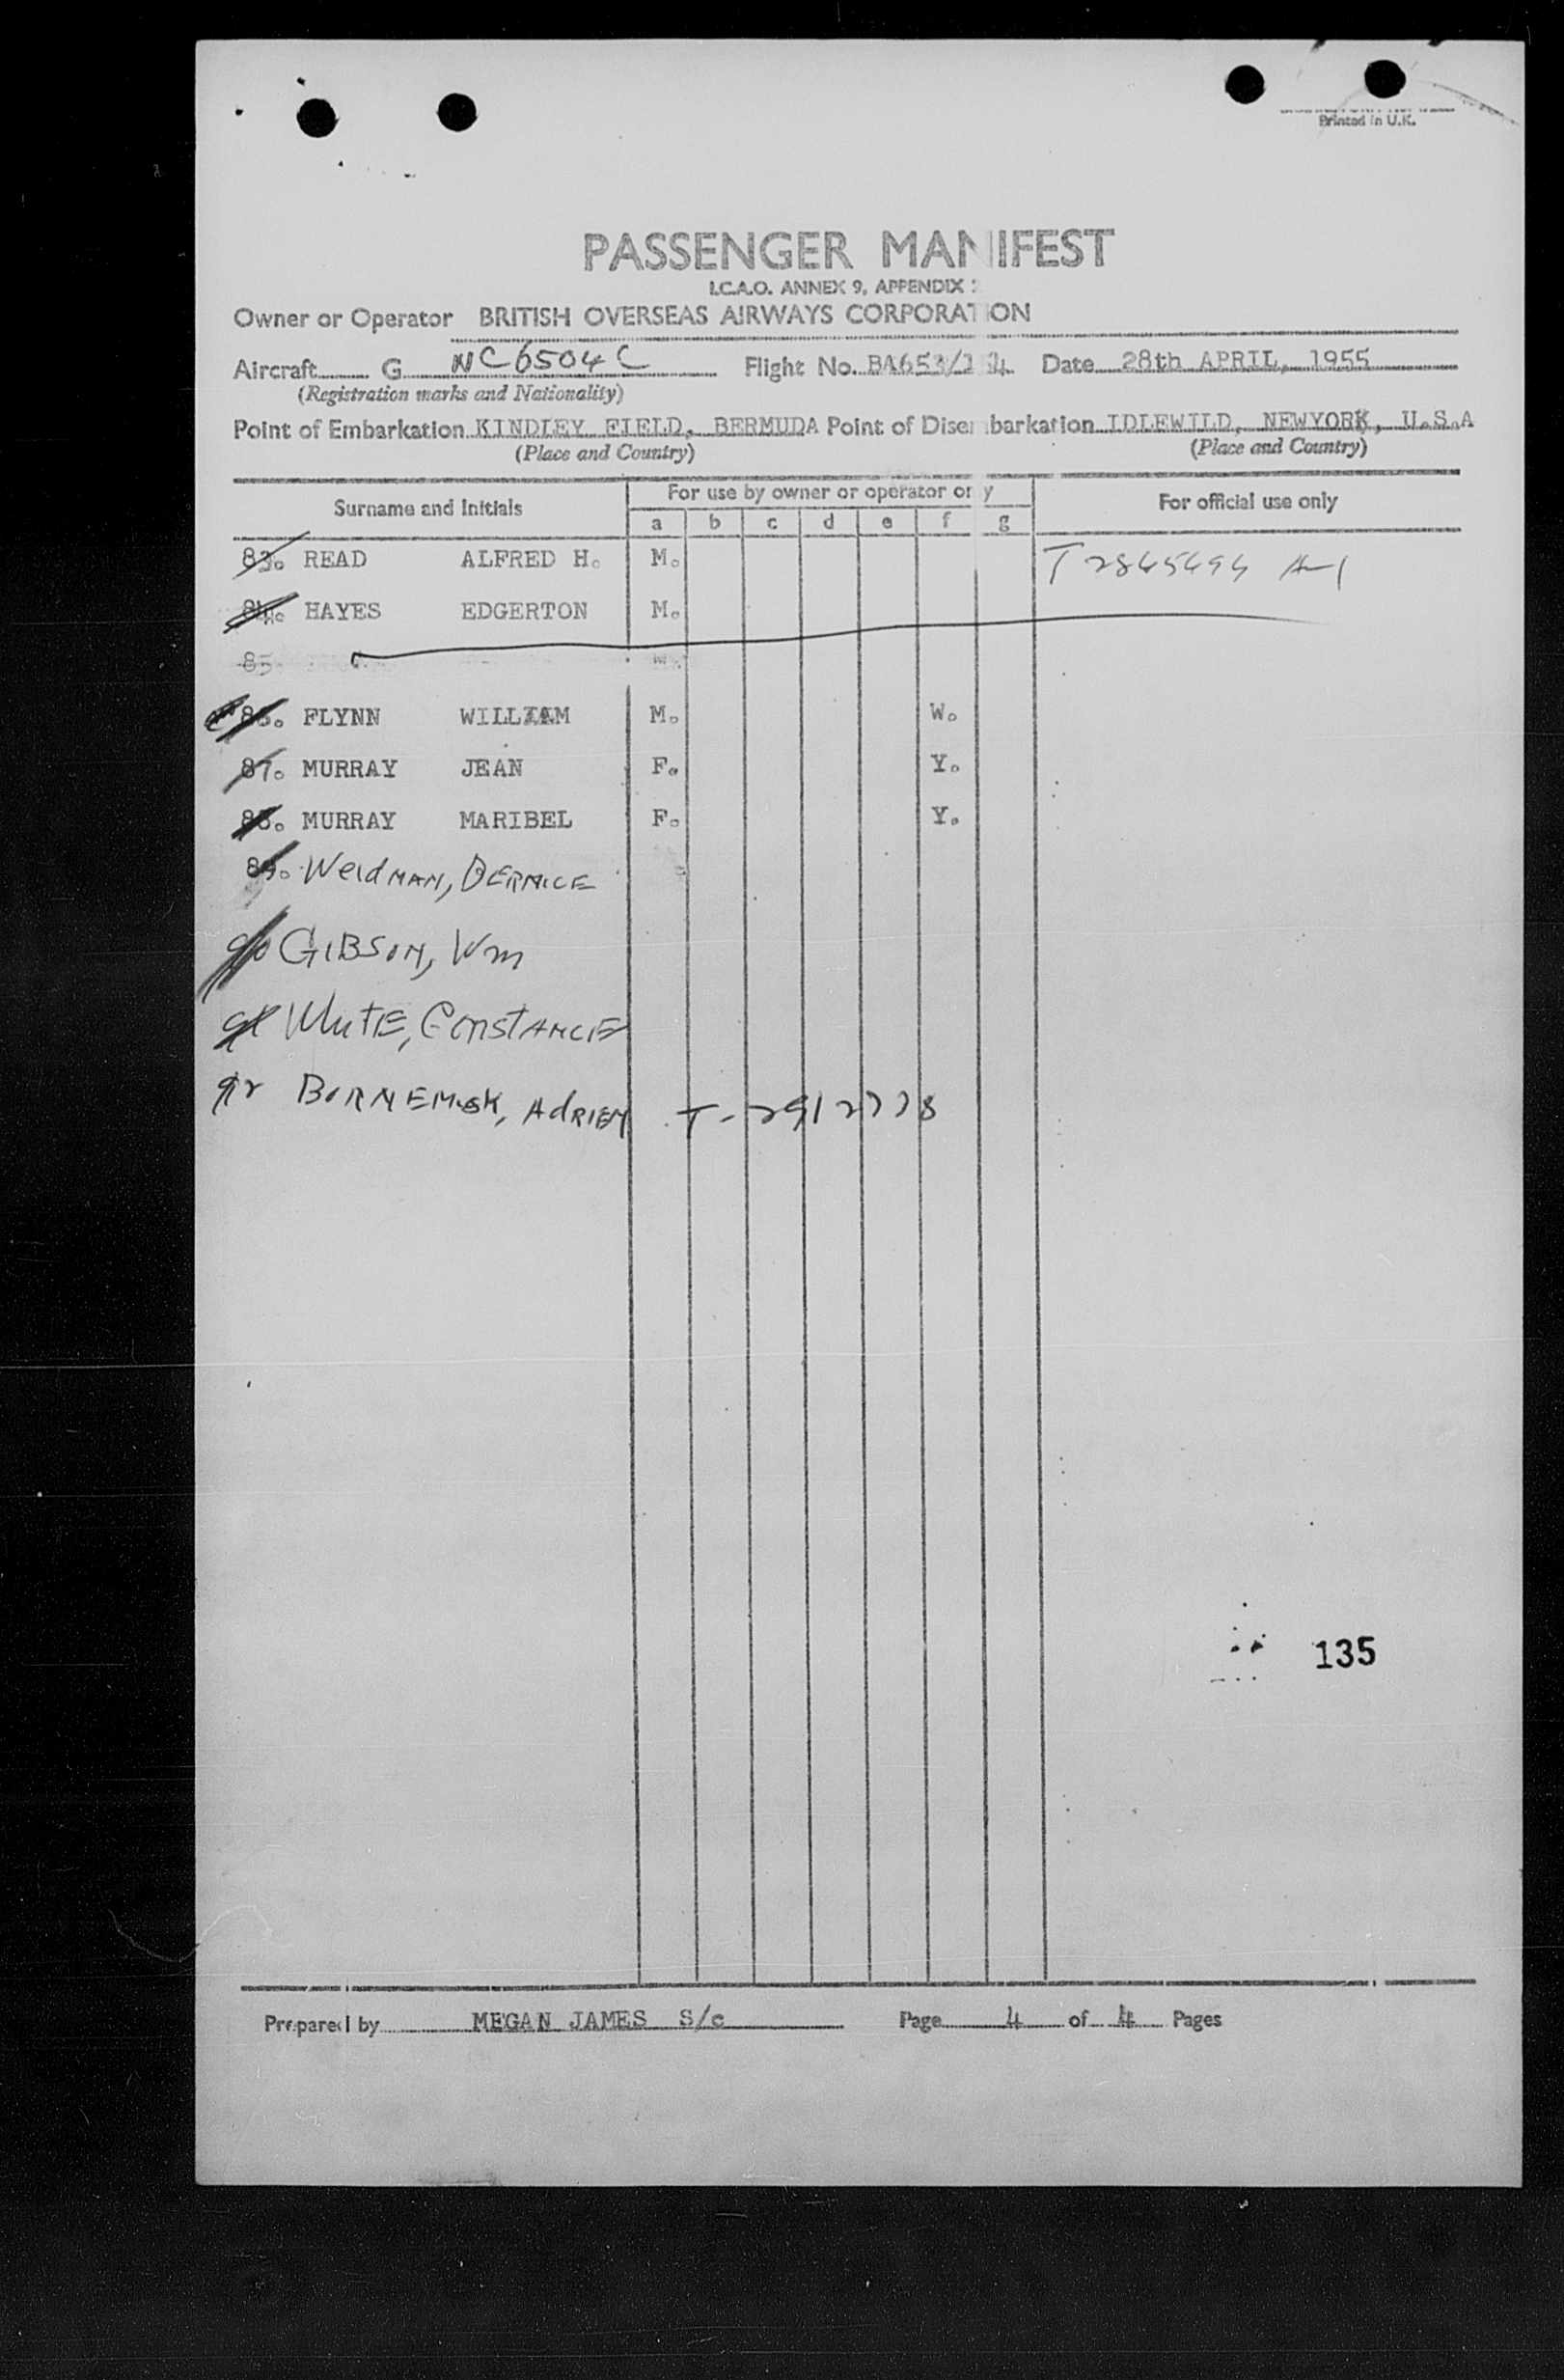 Printed in U.K.
PASSENGER MANIFEST
I.C.A.O. ANNEX 9, APPENDIX
Owner or Operator BRITISH OVERSEAS AIRWAYS CORPORATION
Aircraft G NC6504C Flight No. Date 28th APRIL, 1955
(Registration marks and Nationality)
Point of Embarkation KINDLEY FIELD, BERMUDA Point of Disembarkation IDLEWILD, NEWYORK, U.S.A
(Place and Country) (Place and Country)
Surname and Initials For use by owner or operator only For official use only
a b c d e f g
83. READ ALFRED H. M. T 2845494 A-1
84. HAYES EDGERTON M.
85
86. FLYNN WILLIAM M. W.
87. MURRAY JEAN F. Y.
88. MURRAY MARIBEL F. Y.
89. Weidman, BERNICE
90 GIBSON, Wm
91 White, CONSTANCE
92 ADRIEN T-2912778
135
Prepared by MEGAN JAMES S/c Page 4 of 4 Pages